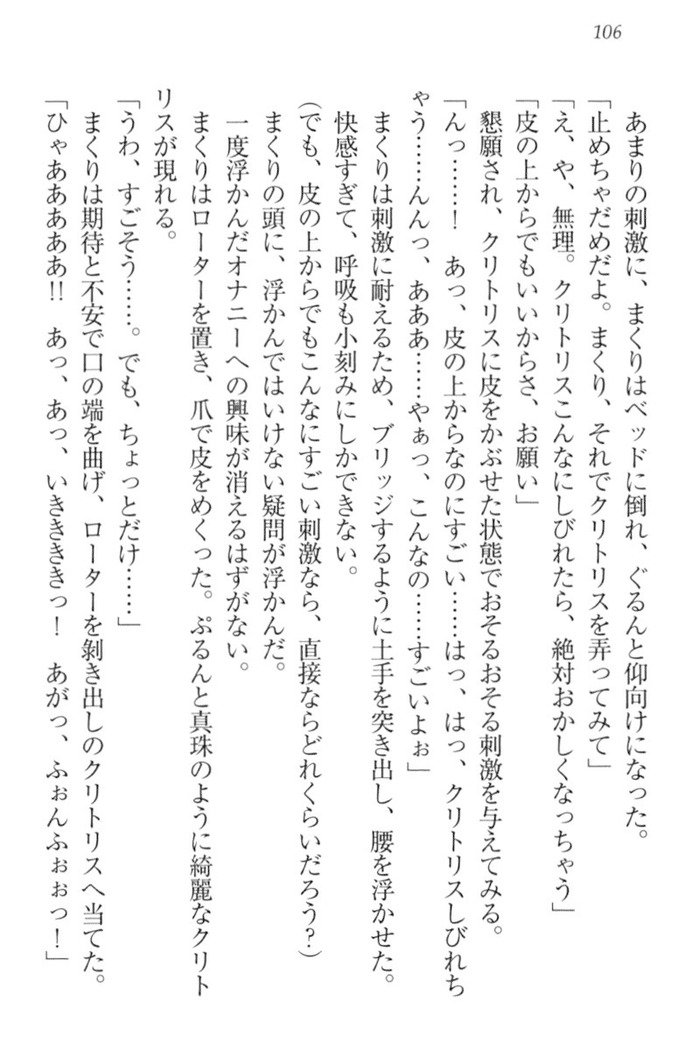 106
あまりの刺激に、まくりはベッドに倒れ、ぐるんと仰向けになった。
「止めちゃだめだよ。まくり、それでクリトリスを弄ってみて」
「え、や、無理。クリトリスこんなにしびれたら、絶対おかしくなっちゃう」
「皮の上からでもいいからさ、お願い」
懇願され、クリトリスに皮をかぶせた状態でおそるおそる刺激を与えてみる。
「んっ……！　あっ、皮の上からなのにすごい……はっ、はっ、クリトリスしびれち
ゃう……んんっ、あああ……やぁっ、こんなの……すごいよぉ」
まくりは刺激に耐えるため、ブリッジするように土手を突き出し、腰を浮かせた。
快感すぎて、呼吸も小刻みにしかできない。
(でも、皮の上からでもこんなにすごい刺激なら、直接ならどれくらいだろう？)
まくりの頭に、浮かんではいけない疑問が浮かんだ。
一度浮かんだオナニーへの興味が消えるはずがない。
まくりはローターを置き、爪で皮をめくった。ぷるんと真珠のように綺麗なクリト
リスが現れる。
「うわ、すごそう……。でも、ちょっとだけ……」
まくりは期待と不安で口の端を曲げ、ローターを剝き出しのクリトリスへ当てた。
「ひゃああああぁ!!　あっ、あっ、いきききっ！　あがっ、ふぉんふぉぉっ！」